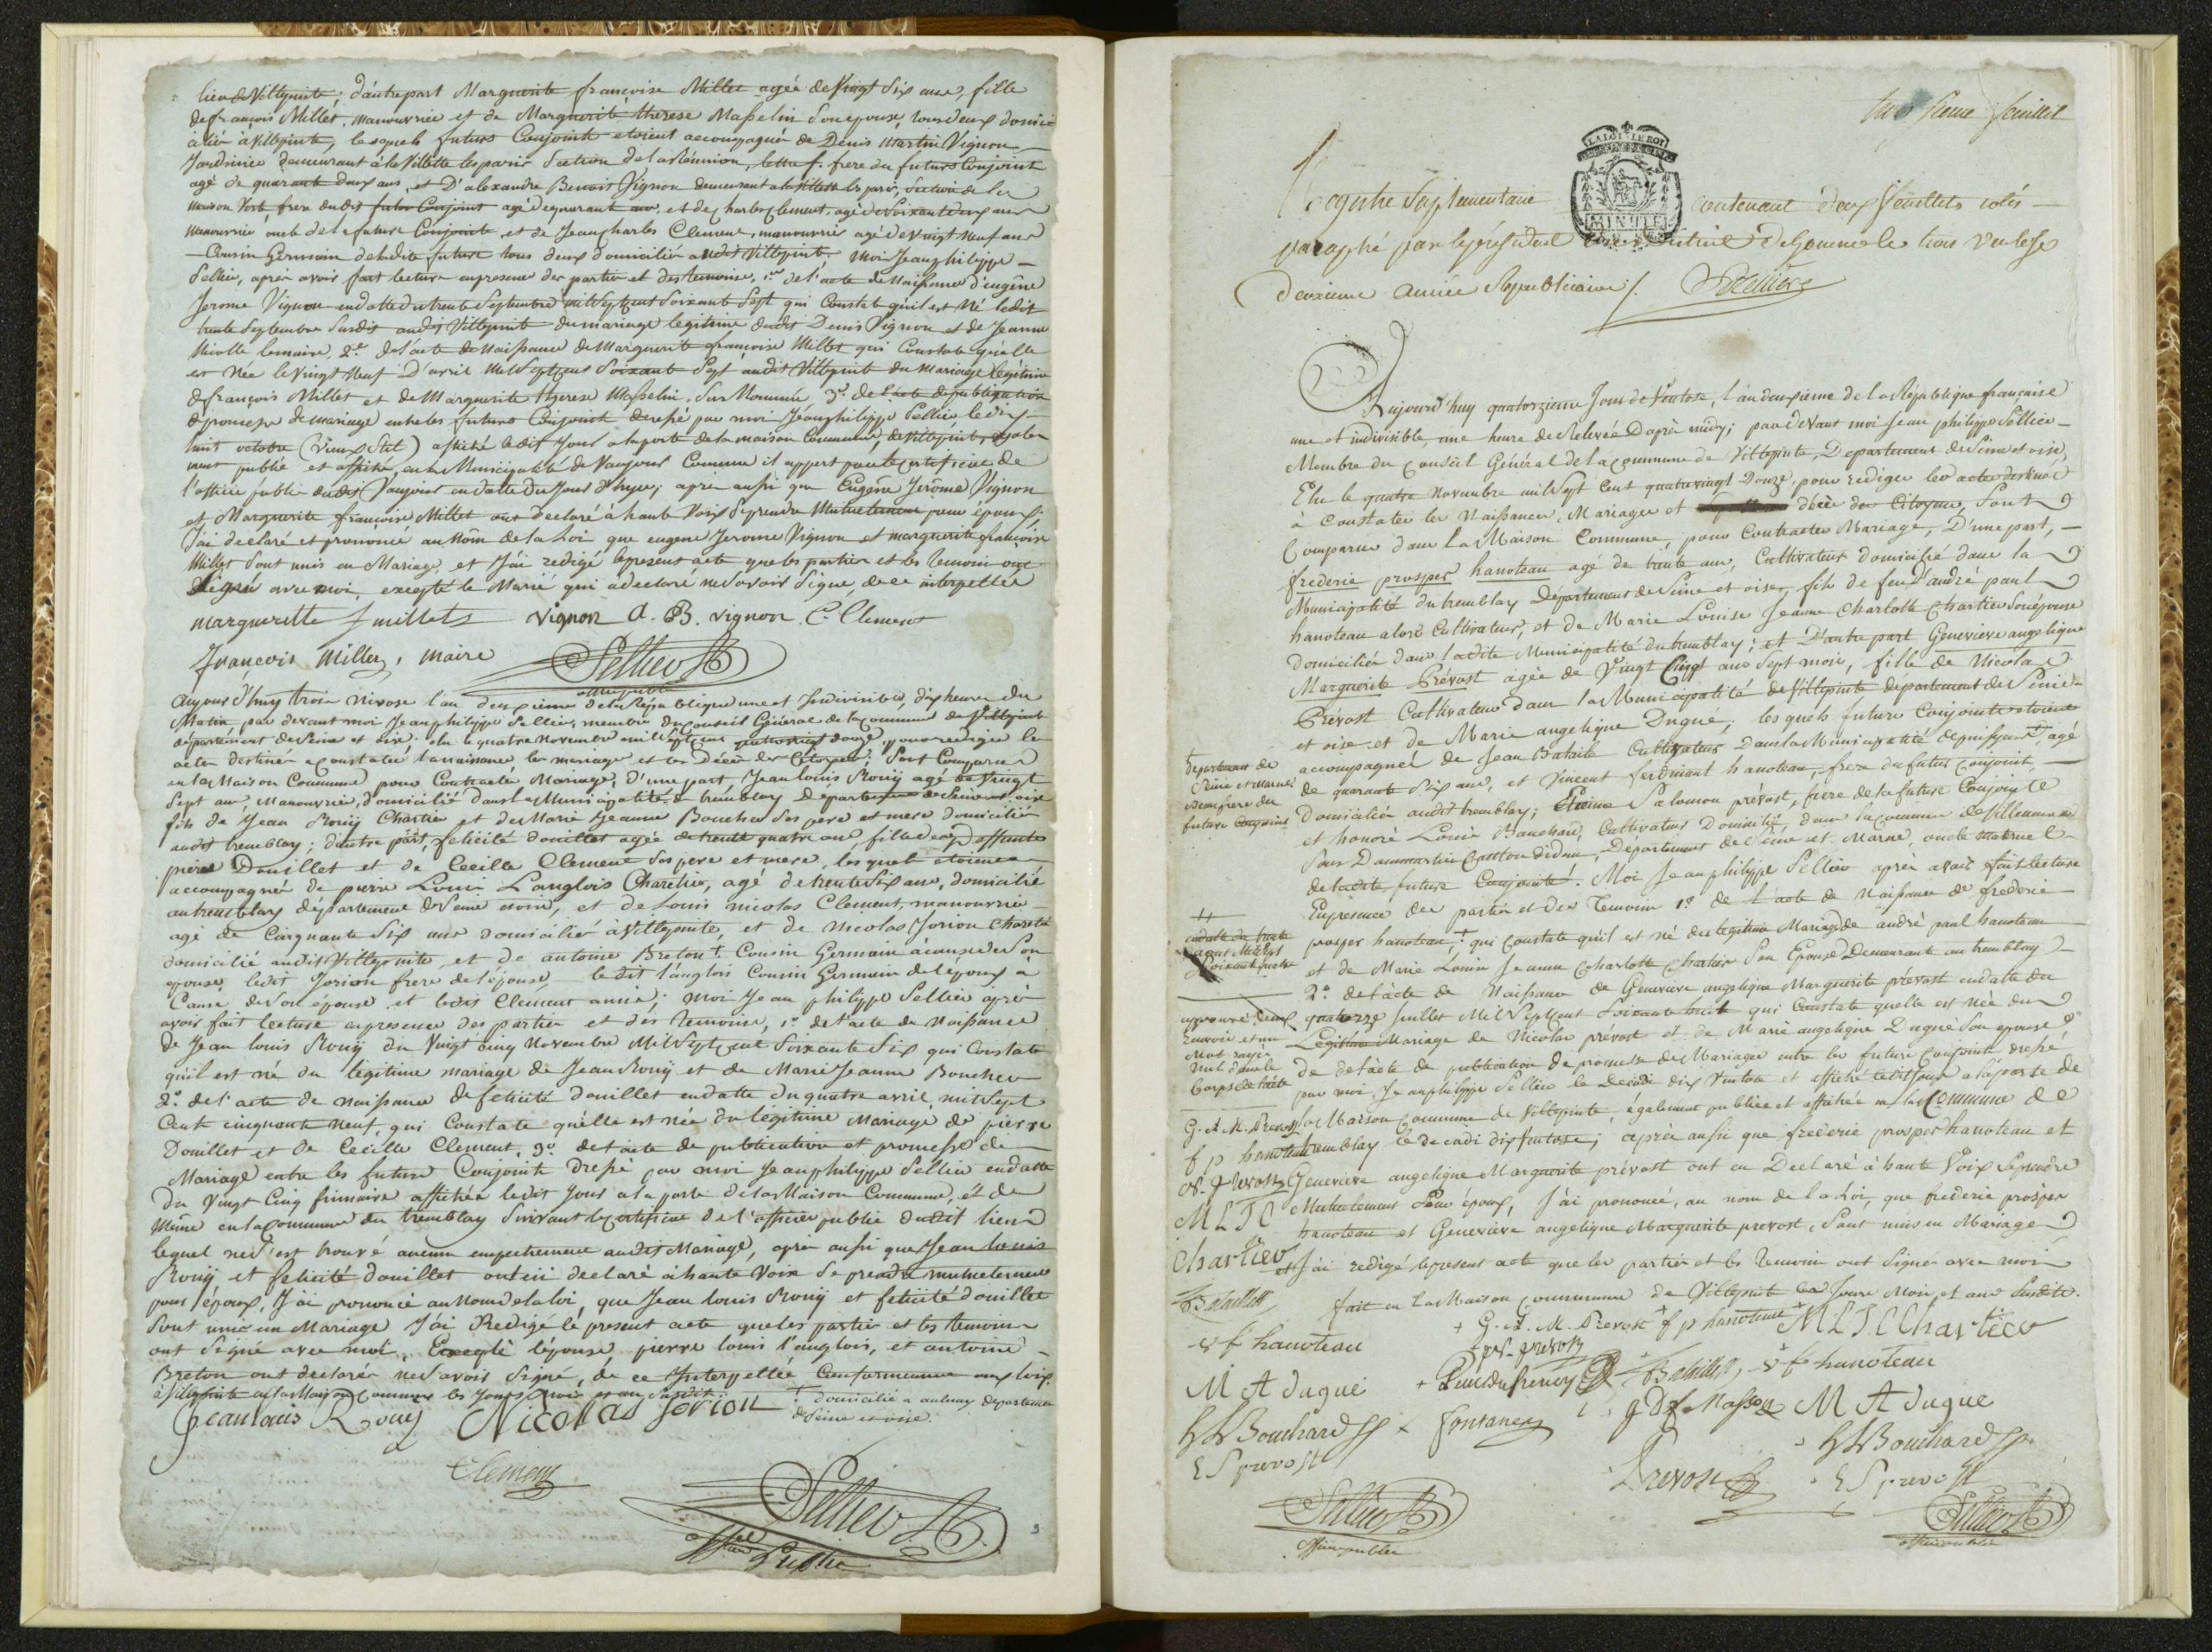 lieu de Villepinte; d'autrepart Marguerite françoise Millet agée de Vingt Six ans, fille
de françois Millet, manouvrier et de Marguerite therese Masselin Son epouse, tous deux domici
ciliés à Villepinte, lesquels futurs Conjoints etoient accompagnés de Denis Martin Vignon
Jardinier demeurant à la Villette les paris Section de la Réunion, frere du futur Conjoint
agé de quarante deux ans, et D'alexandre Benoist Vignon demeurant a la Villette les paris, Section de la
Maison Verte, frere dudit futur Conjoint agé de quarant ans, et de Charles Clement, agé de Soixante deux ans
Manouvrier oncle de la future Conjointe et de Jean Charles Clement, manouvrier agé de vingt neuf ans
Cousin Germain de ladite future tous deux domiciliés audit Villepinte. Moi Jean philippe
Sellier, après avoir fait lecture en presence des parties et des temoins, 1er de l'acte de Naissance d'eugêne
Jerome Vignon en datte du trente Septembre mil Sept Cent Soixante Sept qui Constate qu'il est Né ledit
trente Septembre Susdit audit Villepinte du mariage legitime dudit Denis Vignon et de Jeanne
Nicolle lemaire, 2e de l'acte de Naissance de Marguerite françoise Millet qui Constate qu'elle
est Née le Vingt Neuf D'avril Mil Sept Cent Soixante Sept audit Villepinte du Mariage Légitime
de françois Millet et de Marguerite therese Masselin. Sus Nommée 3e de l'acte de publication
de promesse de mariage entre les futurs Conjoints dressé par moi Jean philippe Sellier le dix
huit octobre (Vieux Stil) affiché le dit Jour a la porte de la maison Commune, de Villepinte, egale
ment publié et affiché, en la Municipalité de Vaujours Comme il appert par le certificat de
l'officier public dudit Vaujours en datte du Jour d'hyer; apres aussi que Eugêne Jerôme Vignon
et Marguerite françoise Millet ont declaré à haute Voix Se prendre Mutuellement pour époux.
J'ai declaré et prononcé au Nom de la Loi que eugene Jerome Vignon et marguerite françoise
Millet Sont unis en Mariage, et J'ai redigé le present acte que les parties et les temoins ont
Signé avec moi, excepté le Marié qui a declaré ne Savoir Signé, de ce interpellé
marguerette f millet vignon A. B. vignon C. Clement
françois Millet, maire Sellier
officier public
Aujourd'huy trois Nivose l'an deuxieme de la République une et Indivisible, dix heures du
Matin, par devant moi Jean philippe Sellier, membre du Conseil Général de la Commune de Villepinte
département de Seine et oise. elu le quatre Novembre mil Sept Cent quatre vingt douze pour rediger les
actes destinés a Constater la naissance, les mariages et les Décès des Citoyens; Sont Comparus
en la Maison Commune pour Contracter Mariage, d'une part, Jean louis Rouy agé de Vingt
Sept ans Manouvrier, domicilié dans la Municipalité de tremblay Departement de Seine et oise
fils de Jean Rouy Chartier et de Marie Jeanne Boucher Ses pere et mere domiciliés
audit tremblay; d'autre part, felicité douillet agée de trente quatre ans, fille de deffunts
pierre Douillet et de Cecille Clement Ses pere et mere, lesquels etoient
accompagnés de pierre Louis Langlois Charetier, agé de trente Six ans, domicilié
au tremblay département de Seine et oise, et de Louis nicolas Clement, manouvrier
agé de Cinquante Six ans domicilié à Villepinte, et de Nicolas Jorion Charetier
domicilié audit Villepinte, et de antoine Breton † Cousin Germain à cause de Son
epouse, ledit Jorion frere de l'épouse, le dit langlois Cousin Germain de l'epoux a
Cause de Son épouse et ledit Clement amis; moi Jean philippe Sellier après
avoir fait lecture en presence des parties et des temoins, 1er de l'acte de Naissance
de Jean louis Rouy du Vingt cinq Novembre Mil Sept Cent Soixante Six qui Constate
qu'il est né du légitime mariage de Jean Rouy et de Marie Jeanne Boucher
2e de l'acte de naissance de felicité douillet en datte du quatre avril mil Sept
Cent cinquante neuf, qui Constate qu'elle est née du légitime Mariage de pierre
Douillet et de Cecille Clement, 3e de l'acte de publication et promesse de
Mariage entre les futurs Conjoints dressé par moi Jean philippe Sellier en datte
du Vingt Cinq frimaire affiché ledit Jour a la porte de la Maison Commune, et de
Même en la Commune du tremblay Suivant le certificat de l'officier public dudit lieu
lequel ne S'est trouvé aucun empechement audit Mariage, après aussi que Jean louis
Rouy et felicité douillet ont eu declaré à haute Voix Se prendre mutuelement
pour époux, J'ai prononcé au Nom de la loi, que Jean louis Rouy et felicité douillet
Sont unis en Mariage J'ai Redigé le present acte que les parties et les temoins
ont Signé avec moi, Excepté l'épouse, pierre louis l'anglois, et antoine
Breton ont declarés ne Savoir Signé, de ce Interpellés Conformement aux loix.
à Villepinte en la Maison Commune les Jours, Mois et an Susdit.
† domicilié a aulnay departement
de Seine et oise.
Jean louis Rouy Nicollas Jorion
Clement
Sellier
officier Public
3
troisieme feuillet
LA LOI LE ROI
MINUTE
Registre Suplementaire contenant deux feuillets cotés
paraphé par le président du district de Gonesse le trois Ventose
deuxieme année Republicaine
Aujourd'huy quatorzieme Jour de Ventose, l'an deuxième de la République française
une et indivisible, une heure de Relevée D'après midy; par devant moi Jean philippe Sellier
Membre du Conseil Général de la Commune de Villepinte, Departement de Seine et oise,
Elu le quatre Novembre mil Sept Cent quatre vingt Douze, pour rediger les actes destinés
à Constater les Naissances, Mariages et décès des Citoyens, Sont
Comparus dans la Maison Commune, pour Contracter Mariage, D'une part,
frederic prosper hanoteau agé de trente ans, Cultivateur domicilié dans la
Municipalité du tremblay Département de Seine et oise, fils de feu D'andré paul
hanoteau alors Cultivateur, et de Marie Louise Jeanne Charlotte Chartier Son épouse
domiciliée dans ladite Municipalité du tremblay; et D'autre part Genevieve angelique
Marguerite Prévost agée de Vingt Cinq ans Sept mois, fille de Nicolas
Prévost Cultivateur dans la Municipalité de Villepinte département de Seine
et oise et de Marie angelique Dugué; lesquels futurs Conjoints etoient
accompagnés de Jean Bataille Cultivateur Dans la Municipalité de puisieux †, agé
de quarante Six ans, et Vincent ferdinant hanoteau, frere du futur Conjoint,
domiciliés audit tremblay; Etienne Salomon prévost, frere de la future Conjointe
et honoré Louis Bouchard, Cultivateur Domicilié, dans la Commune de Villeneuve
Sous Dammartin Canton dudit, Département de Seine et Marne, oncle maternel
de ladite future Conjointe. Moi Jean philippe Sellier après avoir fait lecture
En presence des parties et des Temoins 1er de l'acte de Naissance de frederic
prosper hanoteau, ‡ qui Constate qu'il est né des legitime Mariage de andré paul hanoteau
et de Marie Louise Jeanne Charlotte Chartier Son Epouse Demeurant au tremblay
2e de l'acte de Naissance de Genevieve angelique Marguerite prévost en datte du
quatorze Juillet Mil Sept Cent Soixante huit qui Constate quelle est née du
Legitime Mariage de Nicolas prévost et de Marie angelique Dugué Son epouse,
3e de l'acte de publication de promesse de Mariage entre les futurs Conjoints dressé
par moi Jean philippe Sellier le decadi dix Ventose et affiché ledit Jour a la porte de
la Maison Commune de Villepinte, également publiée et affichée en la Commune de
tremblay le decadi dix Ventose; après aussi que frederic prosper hanoteau et
Genevieve angelique Marguerite prévost ont eu Declaré à haute Voix Se prendre
Mutuelement pour époux, J'ai prononcé, au nom de la Loi, que frederic prosper
hanoteau et Genevieve angelique Marguerite prevost, Sont unis en Mariage
et J'ai redigé le present acte que les parties et les temoins ont Signer avec moi
fait en la Maison Commune de Villepinte les Jours Mois, et ans Susdits.
† Departement de
Seine et Marne
Beau frere du
futur Conjoint
‡
en datte du trente
aout Mil Sept
Soixante quatre
approuvé deux
renvois et un
Mot rayé
Nul dans le
Corps de l'acte
G. A. M. Prevost
f p hanoteau
N. Prevost
M L J C
Chartier
Bataille
v f hanoteau
M A dugué
h L Bouchard
E S prevost
Sellier
officier public
G. A. M. Prevost f p hanoteau M L J C Chartier
N. prevost
Bataille v f hanoteau
fontaney g D f Masson M A dugué
h L Bouchard
Prevost E S prevost
Sellier
officier public